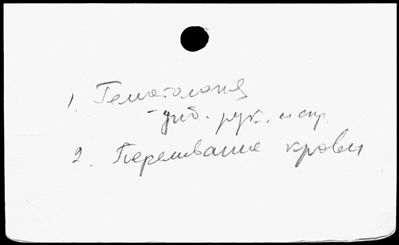 1. Гематология
- учб. рук. и спр.
2. Переливание крови